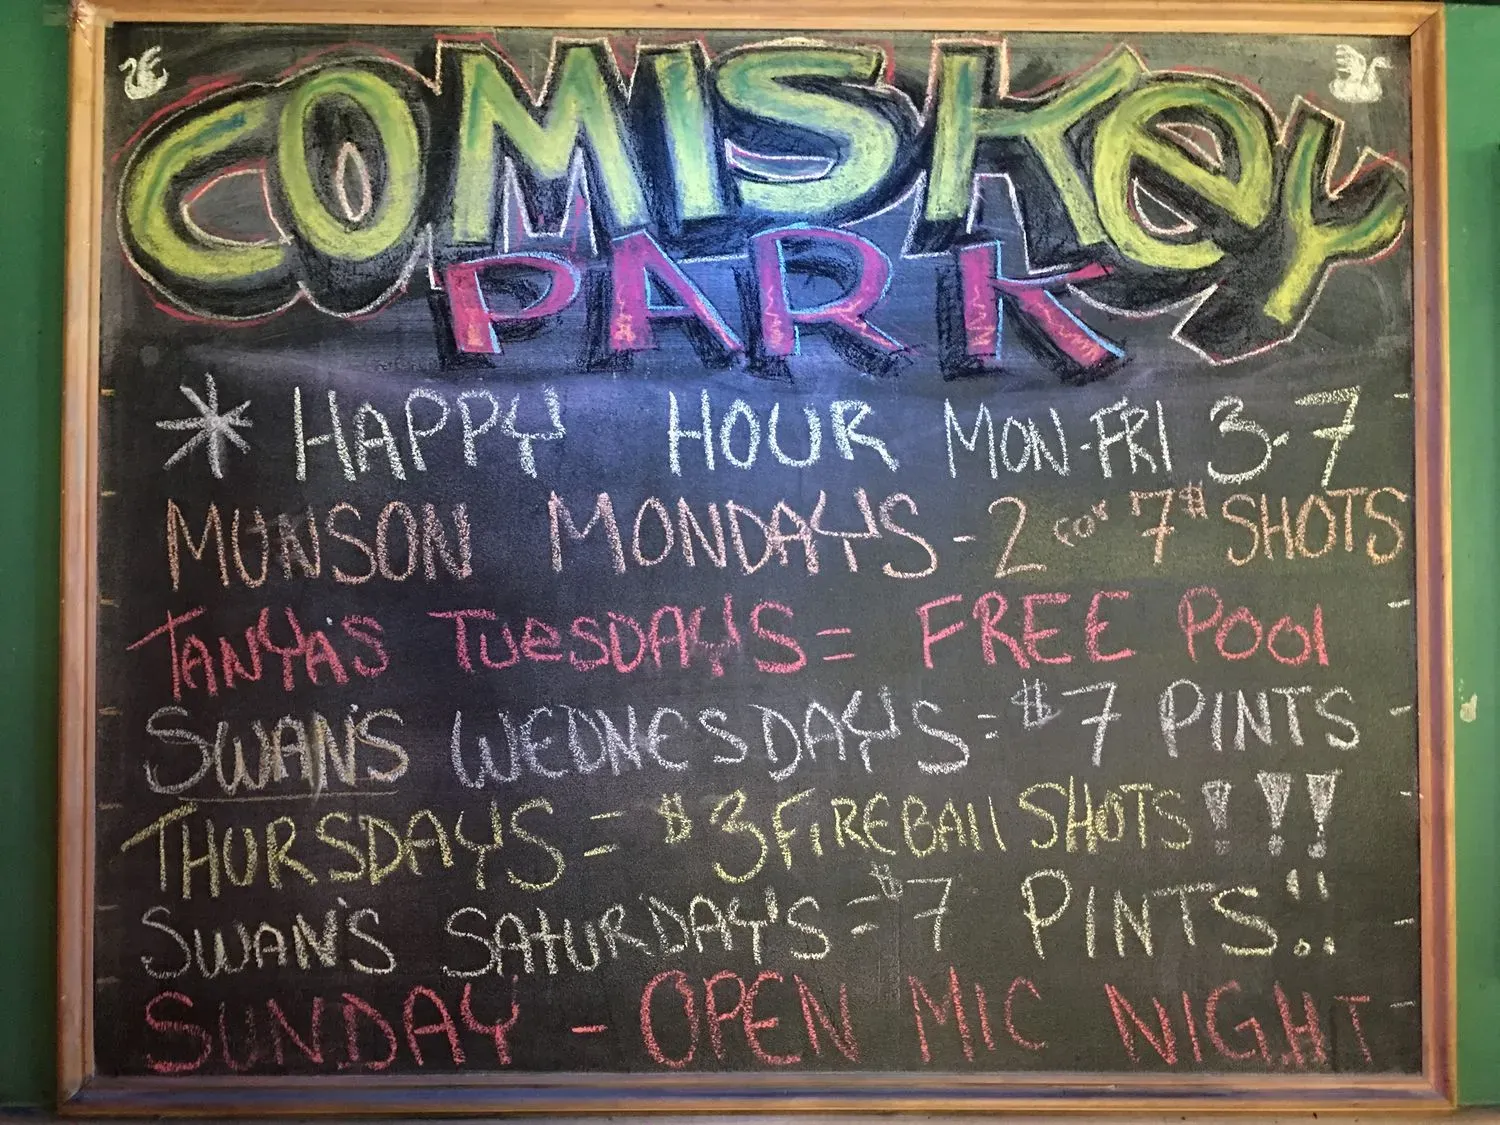 COMISKEY
PARK
* HAPPY HOUR MON-FRI 3-7
MUNSON MONDAYS - 2 for 7$ SHOTS
TANYA'S TUESDAYS = FREE POOl
SWAN'S WEDNESDAYS = $7 PINTS
THURSDAYS = $3 FiREBAll SHOTS !!!
SWAN'S SATURDAY'S = $7 PINTS!!
SUNDAY - OPEN MIC NIGHT